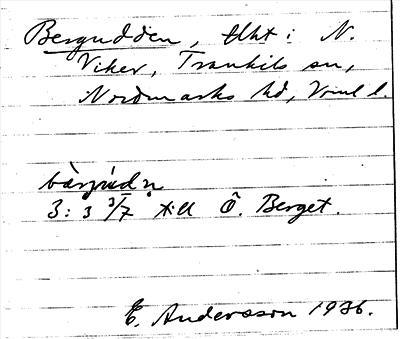 Bergudden, tlht i N.
Viker, Trankils sn,
Nordmarks hd, Vrml l.
bàrjúdn
3:3 3/7 till Ö. Berget.
E. Andersson 1936.